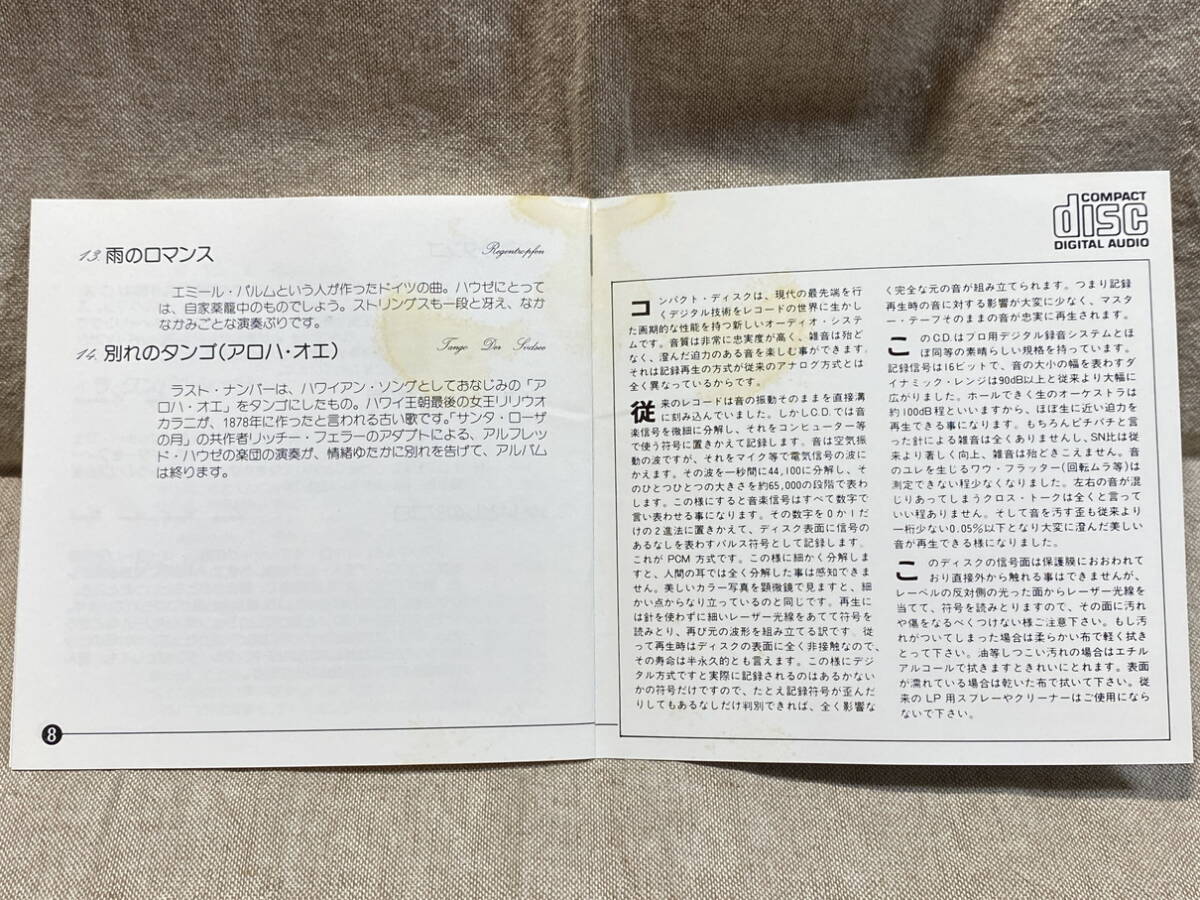 13. 雨のロマンス
Regentropfen
エミール・パルムという人が作ったドイツの曲。ハウゼにとって
は、自家薬籠中のものでしょう。ストリングスも一段と冴え、なか
なかみごとな演奏ぶりです。
14. 別れのタンゴ(アロハ・オエ)
Tango Der Südsee
ラスト・ナンバーは、ハワイアン・ソングとしておなじみの「ア
ロハ・オエ」をタンゴにしたもの。ハワイ王朝最後の女王リリウオ
カラニが、1878年に作ったと言われる古い歌です。「サンタ・ローザ
の月」の共作者リッチー・フェラーのアダプトによる、アルフレッ
ド・ハウゼの楽団の演奏が、情緒ゆたかに別れを告げて、アルバム
は終ります。
8
COMPACT
disc
DIGITAL AUDIO
コンパクト・ディスクは、現代の最先端を行
くデジタル技術をレコードの世界に生かし
た画期的な性能を持つ新しいオーディオ・シス
テムです。音質は非常に忠実度が高く、雑音は殆ど
なく、澄んだ迫力のある音を楽しむ事ができます。
それは記録再生の方式が従来のアナログ方式とは
全く異なっているからです。
従来のレコードは音の振動そのままを直接溝
に刻み込んでいました。しかしC.D.では音
楽信号を微細に分解し、それをコンピューター等
で使う符号に置きかえて記録します。音は空気振
動の波ですが、それをマイク等で電気信号の波に
かえます。その波を一秒間に44,100に分解し、そ
のひとつひとつの大きさを約65,000の段階で表わ
します。この様にすると音楽信号はすべて数字で
言い表わせる事になります。その数字を0か1だ
けの2進法に置きかえて、ディスク表面に信号の
あるなしを表わすパルス符号として記録します。
これが PCM 方式です。この様に細かく分解しま
すと、人間の耳では全く分解した事は感知できま
せん。美しいカラー写真を顕微鏡で見ますと、細
かい点からなり立っているのと同じです。再生に
は針を使わずに細いレーザー光線をあてて符号を
読みとり、再び元の波形を組み立てる訳です。従
って再生時はディスクの表面に全く非接触なので、
その寿命は半永久的とも言えます。この様にデジ
タル方式ですと実際に記録されるのはあるかない
かの符号だけですので、たとえ記録符号が歪んだ
りしてもあるなしだけ判別できれば、全く影響な
く完全な元の音が組み立てられます。つまり記録
再生時の音に対する影響が大変に少なく、マスタ
ー・テープそのままの音が忠実に再生されます。
このC.D.はプロ用デジタル録音システムとほ
ぼ同等の素晴らしい規格を持っています。
記録信号は16ビットで、音の大小の幅を表わすダ
イナミック・レンジは90dB以上と従来より大幅に
広がりました。ホールできく生のオーケストラは
約100dB程といいますから、ほぼ生に近い迫力を
再生できる事になります。もちろんピチパチと言
った針による雑音は全くありませんし、SN比は従
来より著しく向上、雑音は殆どきこえません。音
のユレを生じるワウ・フラッター(回転ムラ等)は
測定できない程少なくなりました。左右の音が混
じりあってしまうクロス・トークは全くと言って
いい程ありません。そして音を汚す歪も従来より
一桁少ない0.05%以下となり大変に澄んだ美しい
音が再生できる様になりました。
このディスクの信号面は保護膜におおわれて
おり直接外から触れる事はできませんが、
レーベルの反対側の光った面からレーザー光線を
当てて、符号を読みとりますので、その面に汚れ
や傷をなるべくつけない様ご注意下さい。もし汚
れがついてしまった場合は柔らかい布で軽く拭き
とって下さい。油等しつこい汚れの場合はエチル
アルコールで拭きますときれいにとれます。表面
が濡れている場合は乾いた布で拭いて下さい。従
来の LP 用スプレーやクリーナーはご使用になら
ないで下さい。